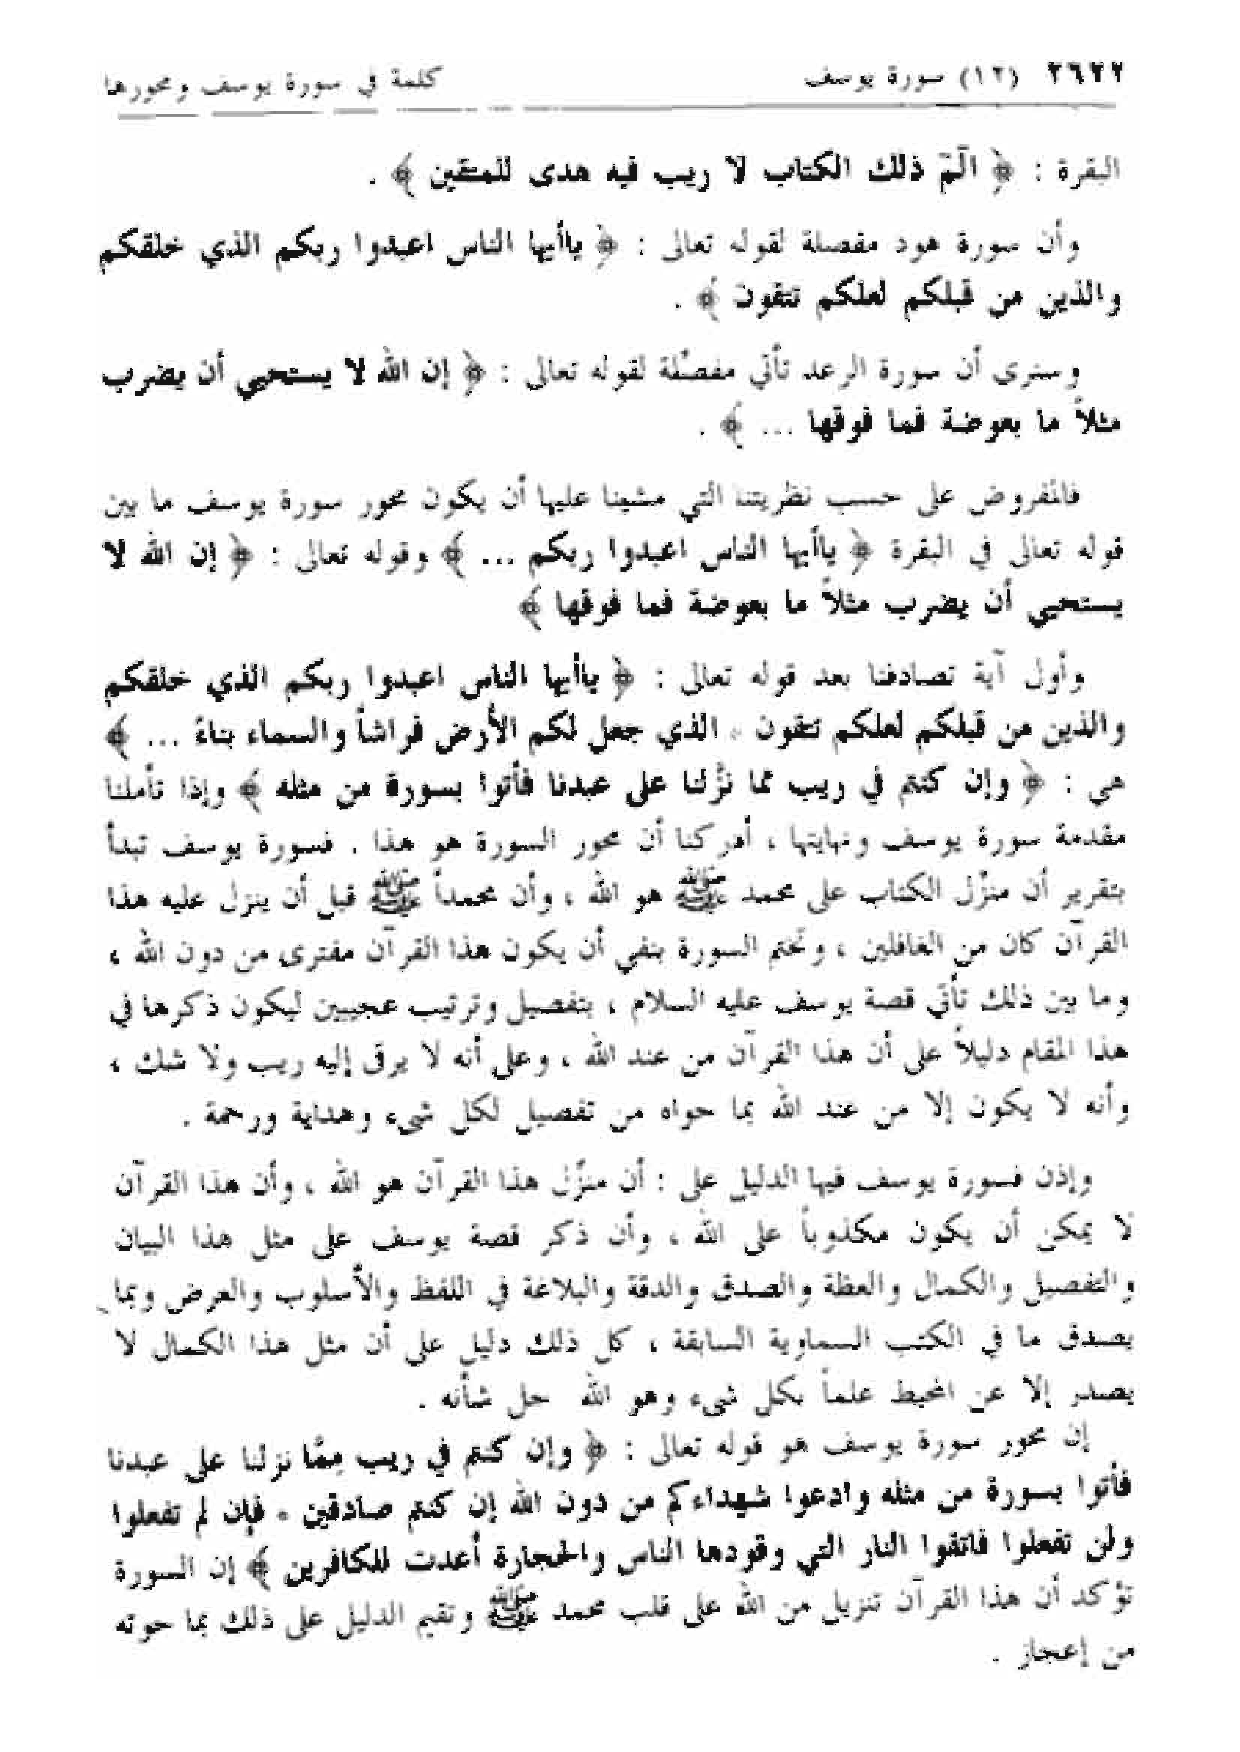 ٢٦٢٢ (١٢) سورة يوسف كلمة في سورة يوسف ومحورها
البقرة : ﴿ الٓمٓ ذلك الكتاب لا ريب فيه هدى للمتقين ﴾ .
وأن سورة هود مفصلة لقوله تعالى : ﴿ ياأيها الناس اعبدوا ربكم الذي خلقكم
والذين من قبلكم لعلكم تتقون ﴾ .
وسنرى أن سورة الرعد تأتي مفصّلة لقوله تعالى : ﴿ إن الله لا يستحيي أن يضرب
مثلاً ما بعوضة فما فوقها ... ﴾ .
فالمفروض على حسب نظريتنا التي مشينا عليها أن يكون محور سورة يوسف ما بين
قوله تعالى في البقرة ﴿ ياأيها الناس اعبدوا ربكم ... ﴾ وقوله تعالى : ﴿ إن الله لا
يستحيي أن يضرب مثلاً ما بعوضة فما فوقها ﴾
وأول آية تصادفنا بعد قوله تعالى : ﴿ ياأيها الناس اعبدوا ربكم الذي خلقكم
والذين من قبلكم لعلكم تتقون * الذي جعل لكم الأرض فراشاً والسماء بناءً ... ﴾
هي : ﴿ وإن كنتم في ريب مما نزّلنا على عبدنا فأتوا بسورة من مثله ﴾ وإذا تأملنا
مقدمة سورة يوسف ونهايتها ، أدركنا أن محور السورة هو هذا . فسورة يوسف تبدأ
بتقرير أن منزّل الكتاب على محمد ﷺ هو الله ، وأن محمداً ﷺ قبل أن ينزل عليه هذا
القرآن كان من الغافلين ، وتختم السورة بنفي أن يكون هذا القرآن مفترى من دون الله ،
وما بين ذلك تأتي قصة يوسف عليه السلام ، بتفصيل وترتيب عجيبين ليكون ذكرها في
هذا المقام دليلاً على أن هذا القرآن من عند الله ، وعلى أنه لا يرقى إليه ريب ولا شك ،
وأنه لا يكون إلا من عند الله بما حواه من تفصيل لكل شيء وهداية ورحمة .
وإذن فسورة يوسف فيها الدليل على : أن منزّل هذا القرآن هو الله ، وأن هذا القرآن
لا يمكن أن يكون مكذوباً على الله ، وأن ذكر قصة يوسف على مثل هذا البيان
والتفصيل والكمال والعظة والصدق والدقة والبلاغة في اللفظ والأسلوب والعرض وبما
يصدق ما في الكتب السماوية السابقة ، كل ذلك دليل على أن مثل هذا الكمال لا
يصدر إلا عن المحيط علماً بكل شيء وهو الله جل شأنه .
إن محور سورة يوسف هو قوله تعالى : ﴿ وإن كنتم في ريب مِمَّا نزلنا على عبدنا
فأتوا بسورة من مثله وادعوا شهداءكم من دون الله إن كنتم صادقين * فإن لم تفعلوا
ولن تفعلوا فاتقوا النار التي وقودها الناس والحجارة أعدت للكافرين ﴾ إن السورة
تؤكد أن هذا القرآن تنزيل من الله على قلب محمد ﷺ وتقيم الدليل على ذلك بما حوته
من إعجاز .